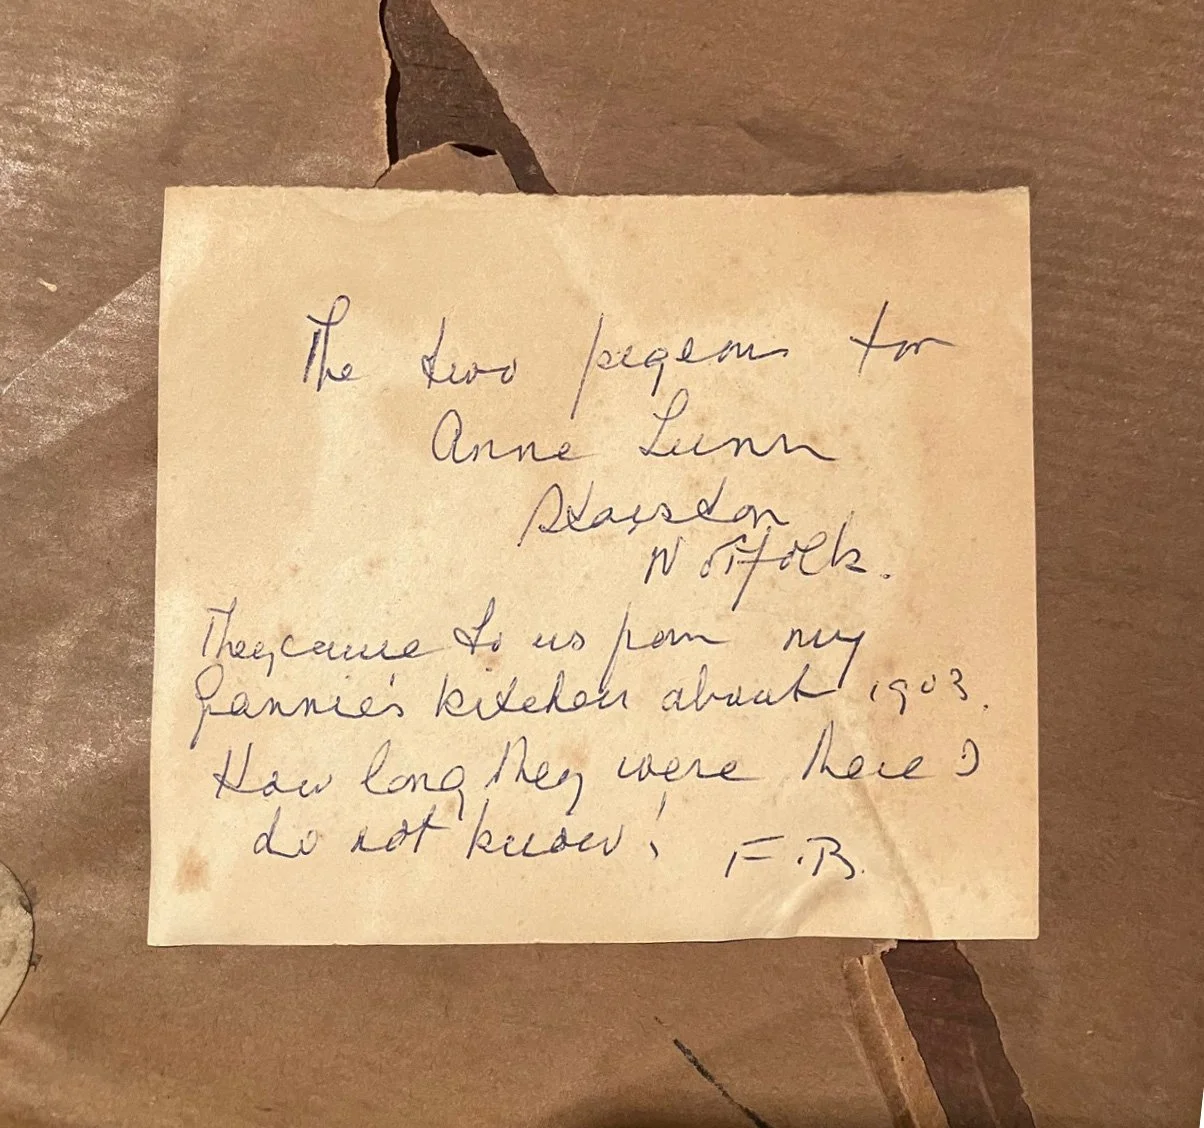 The two pegeons for
Anne Lunn
Starston
Norfolk.
They came to us from my
Grannie's kitchen about 1903.
How long they were there I
do not know! F.B.